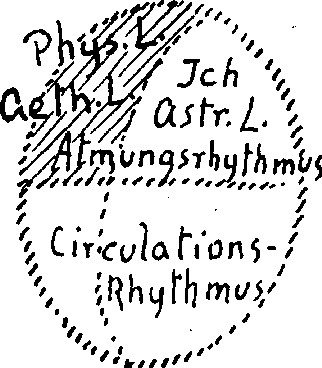 Phys. L.
Aeth. L.
Ich
Astr. L.
Atmungsrhythmus
Circulations-
Rhythmus